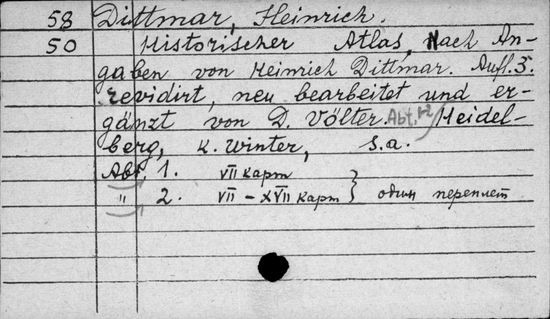 58 Dittmar, Heinrich.
50 Historischer Atlas, Nach An-
gaben von Heinrich Dittmar. Aufl. 3.
revidirt, neu bearbeitet und er-
gänzt von D. Völter. Abt. 1-2 Heidel-
berg, K. Winter, s.a.
Abt. 1. VII карт
" 2. VII - XVII карт } один переплет